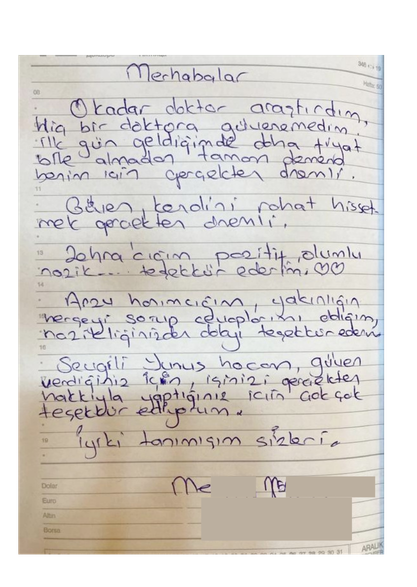 Merhabalar
O kadar doktor araştırdım,
Hiç bir doktora güvenemedim.
İlk gün geldiğimde daha fiyat
bile almadan tamam demem
benim için gerçekten önemli.
Güven, kendini rahat hisset-
mek gerçekten önemli.
Zehra'cığım pozitif, olumlu
nazik.... teşekkür ederim, ♡♡
Arzu hanımcığım, yakınlığın
herşeyi sorup cevaplarımı aldığım,
nazikliğinizden dolayı teşekkür ederim
Sevgili Yunus hocam, güven
verdiğiniz için, işinizi gerçekten
hakkıyla yaptığınız için çok çok
teşekkür ediyorum.
İyiki tanımışım sizleri.
Me
Dolar
Euro
Altın
Borsa
ARALIK